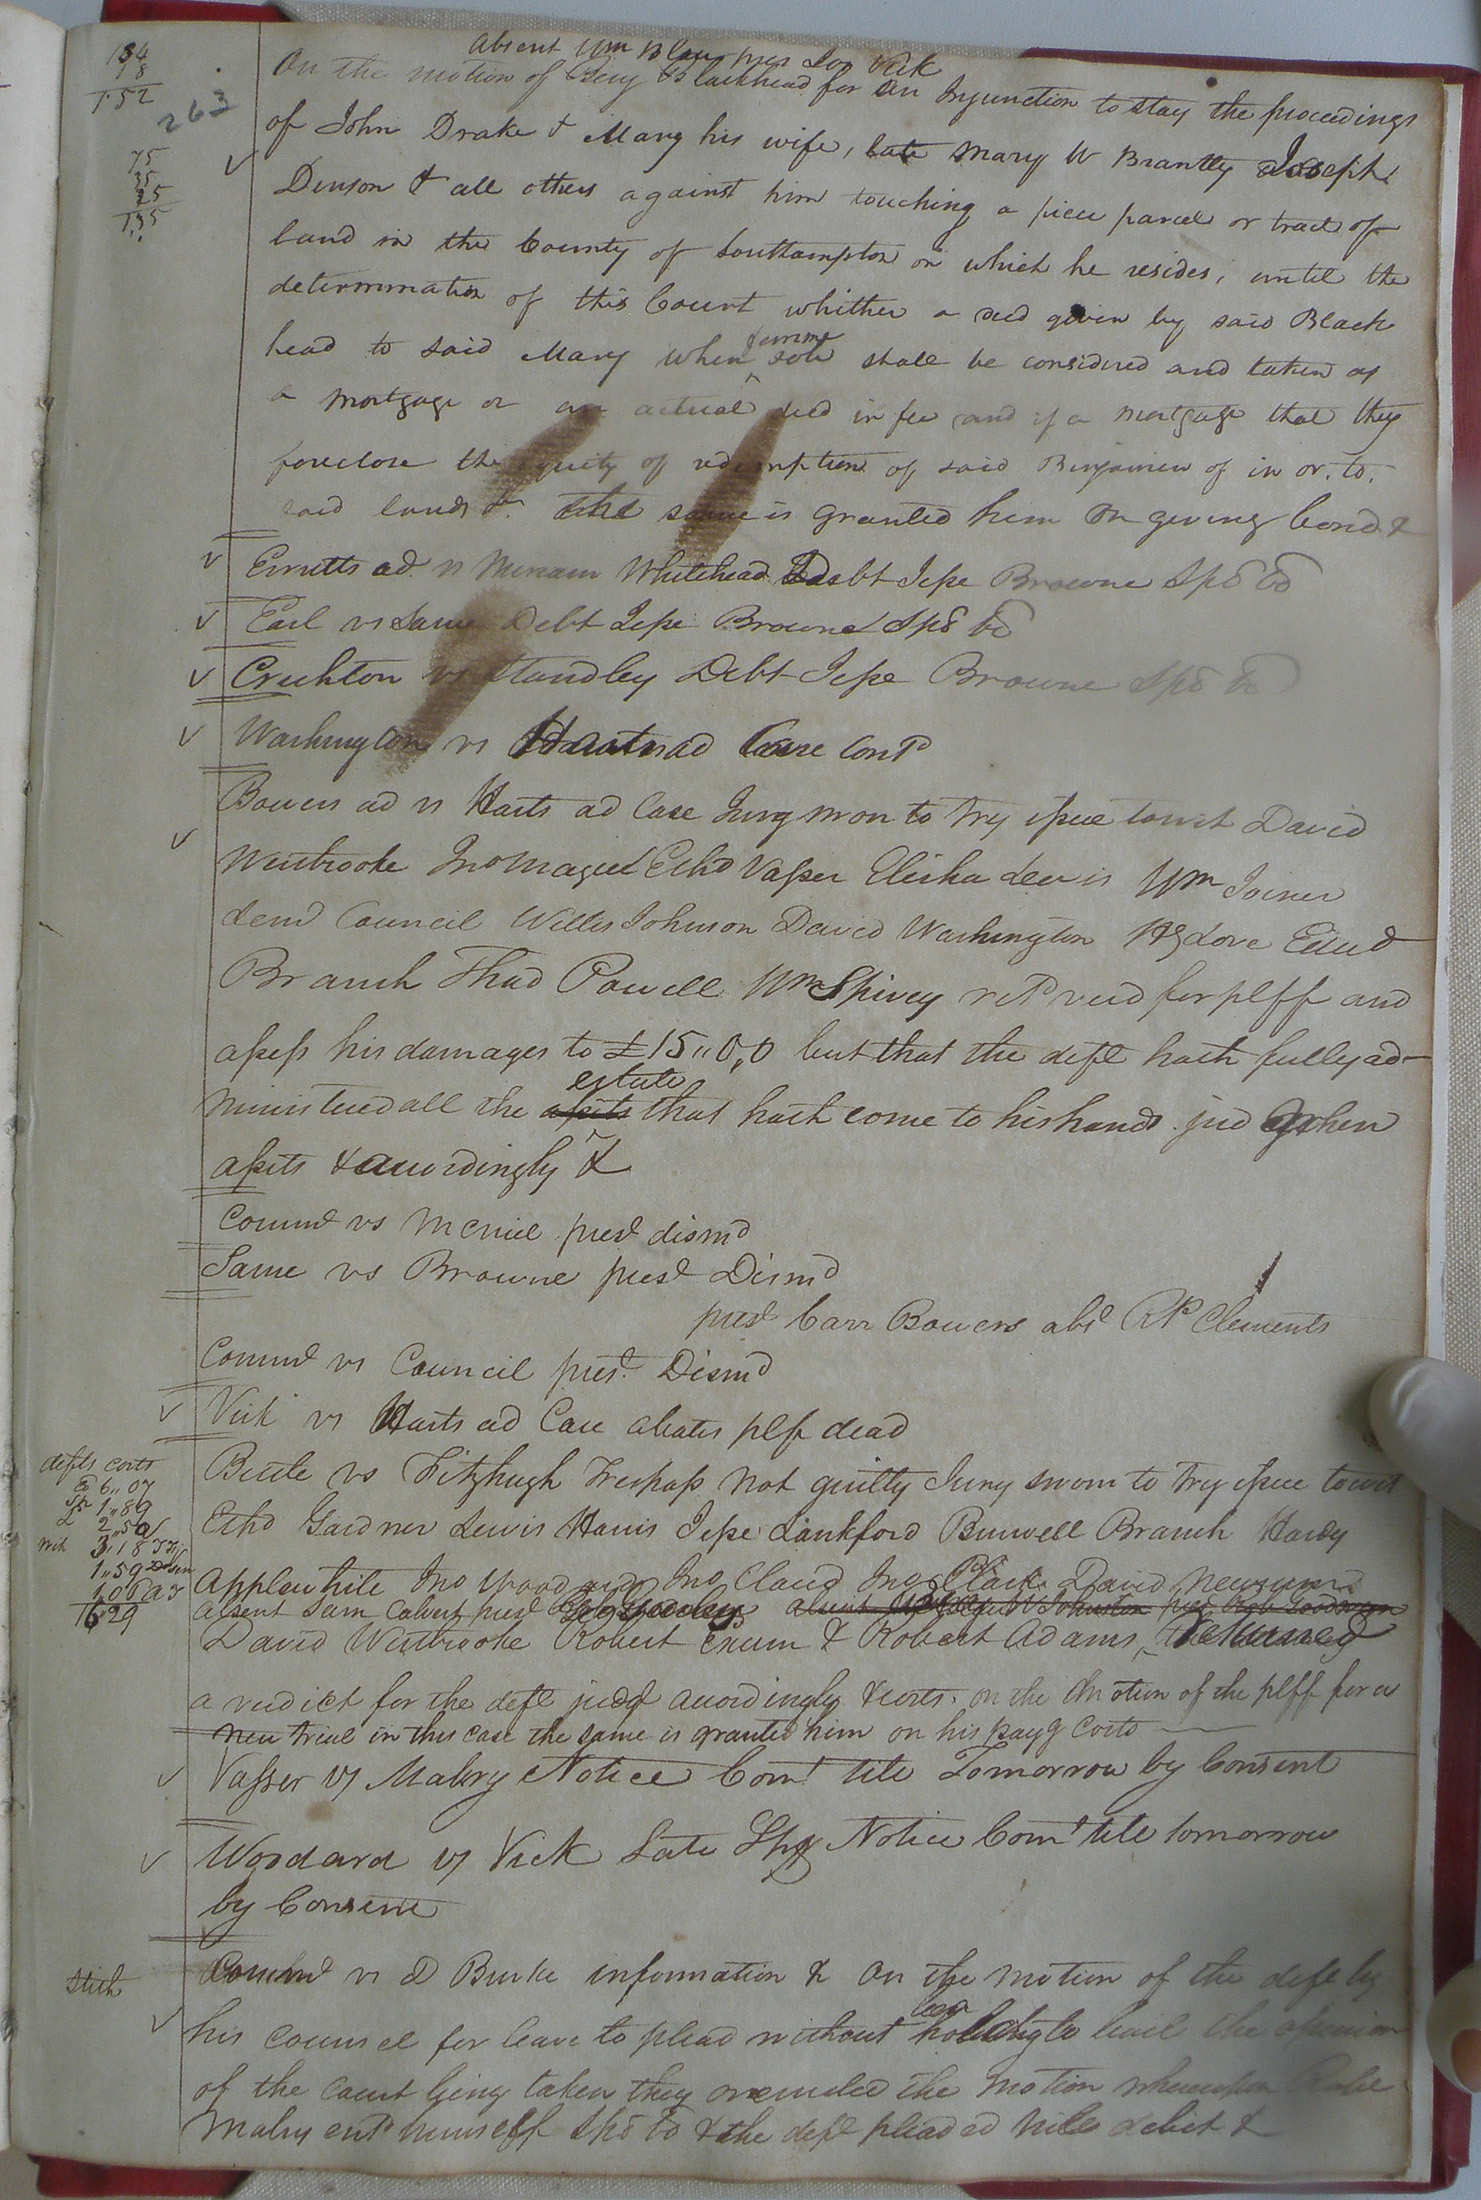 134
18
1.52
263
75
35
25
135
Absent Wm Blow pres Jos Vick
On the motion of Benj Blackhead for an Injunction to stay the proceedings
of John Drake & Mary his wife, late Mary W Brantly Joseph
Denson & all others against him touching a piece parcel or tract of
land in the County of Southampton on which he resides, until the
determination of this Court whether a deed given by said Black
head to said Mary when femme sole shall be considered and taken as
a mortgage or an actual deed in fee and if a mortgage that they
foreclose the equity of redemption of said Benjamin of in or to
said lands &c. the same is granted him on giving bond &
Ernetts ad vs Miriam Whitehead Debt Jesse Browne Spō bō
Earl vs Same Debt Jesse Browne Spō bō
Crichton vs Standley Debt Jesse Browne Spō bō
Washington vs Harts ad Case Contd
Bowers ad vs Harts ad Case Jury sworn to try issue towit David
Westbrooke Jno Magee Ethd Vasser Elisha Lewis Wm Joiner
Lemd Council Willis Johnson David Washington Hy Love Edwd
Branch Thad Powell Wm Spivey retd verd for plff and
assess his damages to £15,,0,0 but that the deft hath fully ad-
ministered all the assits estate that hath come to his hands jud when
assits & accordingly &
Commd vs McNiel prest dismd
Same vs Browne prest Dismd
prest Carr Bowers abst RP Clements
Commd vs Council prest Dismd
Vick vs Harts ad Case abates plff dead
defts costs
6,,07
1,,89
2,,50
3,,18
1,,59
1,06
16 29
Bittle vs Fitzhugh Trespass not guilty Jury sworn to try issue towit
Ethd Gardner Lewis Harris Jesse Lankford Burwell Branch Hardy
Applewhite Jno Woodard Jno Claud Jno Clark David Newsum
absent Sam Calvert prest absent Johnston prest Rob Goodwyn
David Westbrooke Robert Exum & Robert Adams, returned
a verdict for the deft judgt accordingly & costs. on the motion of the plff for a
new trial in this case the same is granted him on his payg costs
Vasser vs Mabry Notice Cont till Tomorrow by Consent
Woodard vs Vick Late Shff Notice Cont till tomorrow
by Consent
Stith
Commd vs D Burke information & On the motion of the deft by
his counsel for leave to plead without being held to bail the opinion
of the court being taken they overruled the motion whereupon
Mabry entd himself Spō bō & the deft pleaded nil debit &